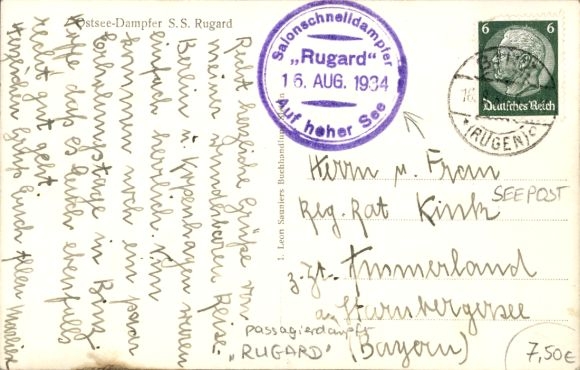 Ostsee-Dampfer S.S. Rugard
Salonschnelldampfer
„Rugard"
16. AUG. 1934
Auf hoher See
6 6
Deutsches Reich
(RÜGEN)
Recht herzliche Grüße von
meiner wunderbaren Reise.
Berlin u. Kopenhagen waren
einfach herrlich. Nun
kommen noch ein paar
Ruhetage in Binz.
Hoffe, daß es Euch ebenfalls
recht gut geht.
Herzlichst grüßt Euch allen
I. Leon Sauniers Buchhandlung
Herrn u. Frau
Reg. Rat Kink
SEEPOST
z. Zt. Ammerland
a/Starnbergersee
(Bayern)
passagierdampfer
„RUGARD"
7,50€